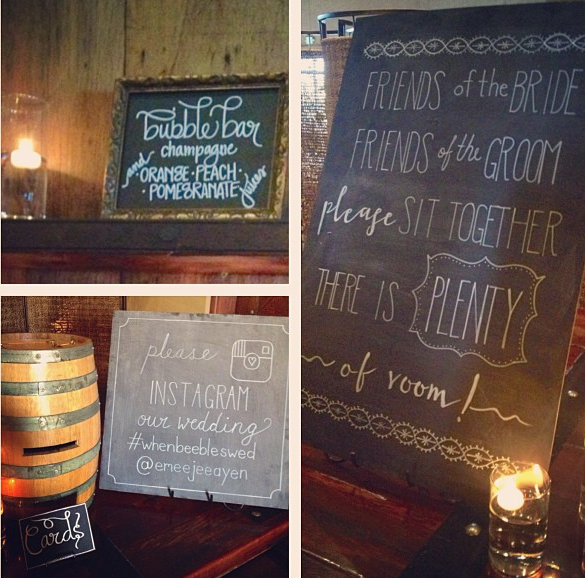 bubble bar
champagne
and ORANGE · PEACH
· POMEGRANATE juices
FRIENDS of the BRIDE
FRIENDS of the GROOM
please SIT TOGETHER
THERE IS PLENTY
of room!
please
INSTAGRAM
our wedding
#whenbeebleswed
@emeejeeayen
Cards